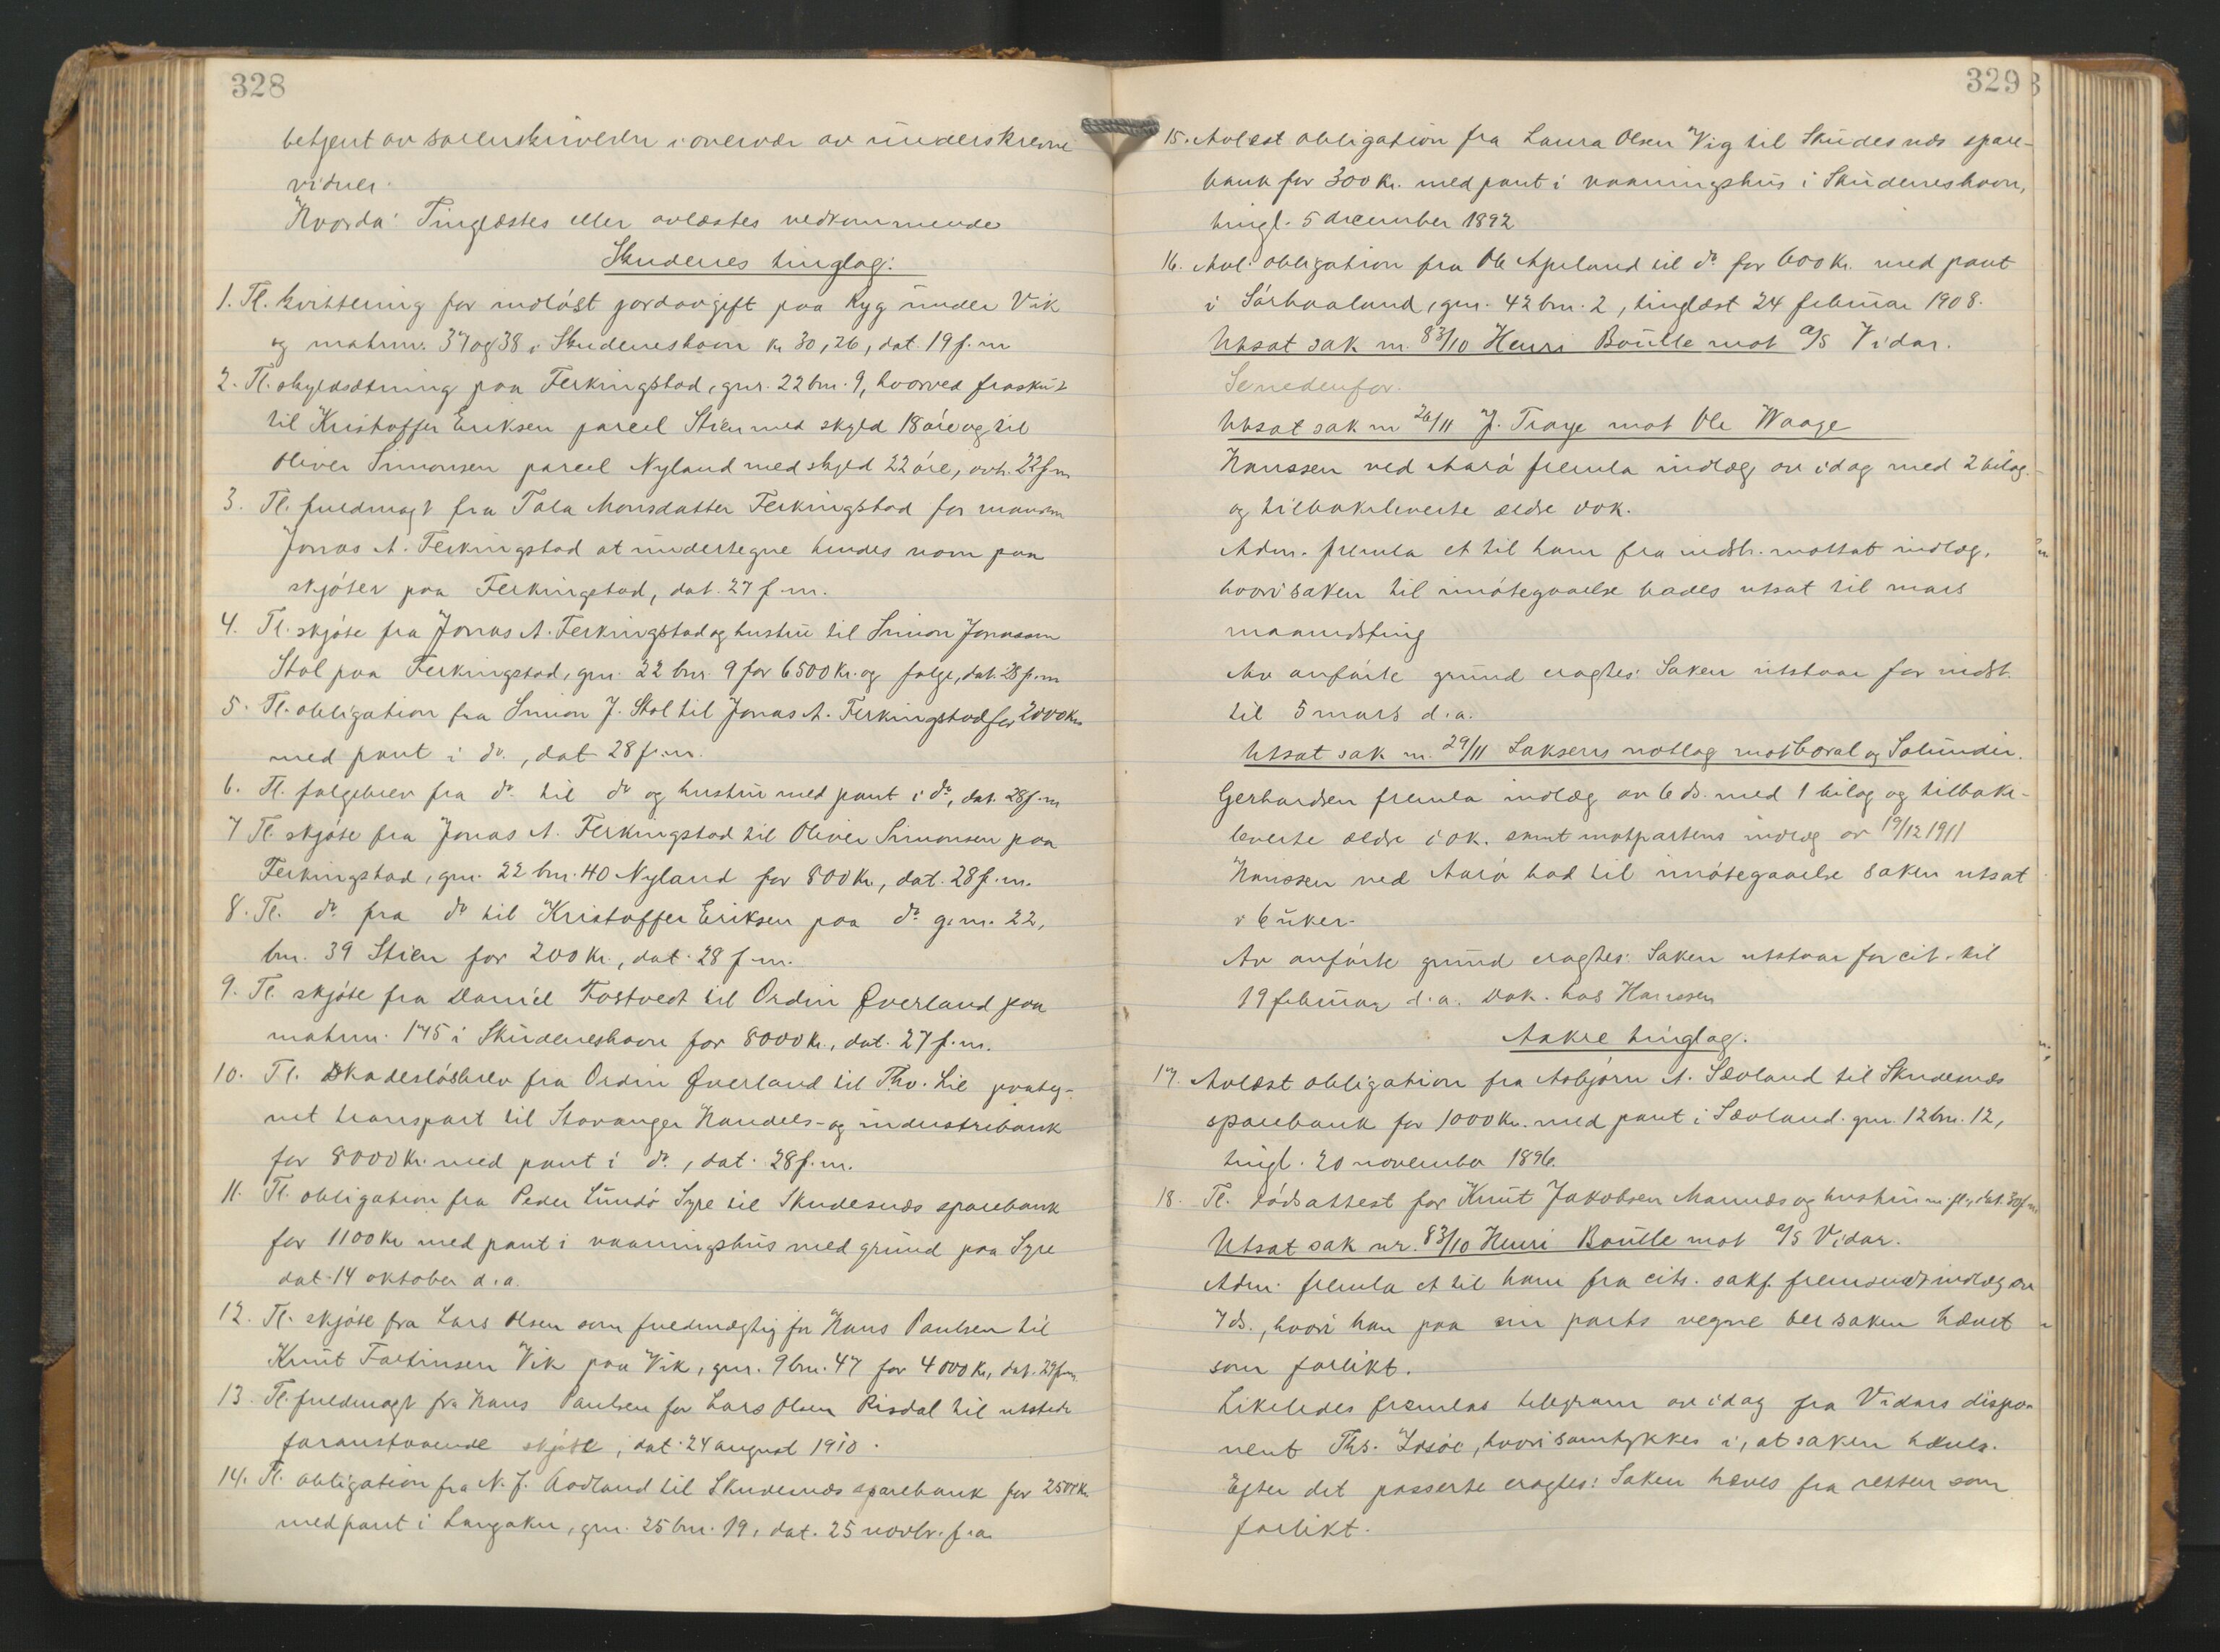 328
betjent av sorenskriveren i overvær av underskrevne
vidner.
Hvorda: Tinglæstes eller avlæstes vedkommende
Skudenes tinglag:
1. Tl. kvittering for indløst jordavgift paa Ryg under Vik
og matrnr. 37 og 38 i Skudeneshavn kr 30,26, dat. 19 f.m
2. Tl. skyldsætning paa Ferkingstad, gnr. 22 bnr. 9, hvorved fraskilt
til Kristoffer Eriksen parcel Stien med skyld 18 øre og til
Oliver Simonsen parcel Nyland med skyld 22 øre, avh. 22 f.m
3. Tl. fuldmagt fra Tala Monsdatter Ferkingstad for manden
Jonas A. Ferkingstad at undertegne hendes navn paa
skjøter paa Ferkingstad, dat. 27 f.m.
4. Tl. skjøte fra Jonas A. Ferkingstad og hustru til Simon Jonassen
Stol paa Ferkingstad, gnr. 22 bnr. 9 for 6500 kr. og følge, dat. 28 f.m
5. Tl. obligation fra Simon J. Stol til Jonas A. Ferkingstad for 2000 kr
med pant i do., dat 28 f.m.
6. Tl. følgebrev fra do. til do og hustru med pant i do, dat. 28 f.m
7 Tl. skjøte fra Jonas A. Ferkingstad til Oliver Simonsen paa
Ferkingstad, gnr. 22 bnr. 40 Nyland for 800 kr, dat. 28 f.m.
8. Tl. do. fra do til Kristoffer Eriksen paa do. g.nr. 22,
bnr. 39 Stien for 200 kr., dat. 28 f.m.
9. Tl. skjøte fra Daniel Fostvedt til Ordin Øverland paa
matrnr. 175 i Skudeneshavn for 8000 kr., dat. 27 f.m.
10. Tl. Skadesløsbrev fra Ordin Øverland til Thv. Lie paateg-
net transport til Stavanger Handels- og industribank
for 8000 kr. med pant i do., dat. 28 f.m.
11. Tl. obligation fra Peder Lundø Syre til Skudesnæs sparebank
for 1100 kr med pant i vaaningshus med grund paa Syre
dat. 14 oktober d.a.
12. Tl. skjøte fra Lars Olsen som fuldmægtig for Hans Paulsen til
Knut Tostinsen Vik paa Vik, gnr. 9 bnr. 47 for 4000 kr, dat. 29 f.m.
13. Tl. fuldmagt fra Hans Paulsen for Lars Olsen Risdal til utstede
foranstaaende skjøte, dat. 24 august 1910.
14. Tl. obligation fra N. J. Aadland til Skudesnæs sparebank for 2500 kr.
med pant i Langaker, gnr. 25 bnr. 19, dat. 25 novbr. f.a.
329
15. Avlæst obligation fra Laura Olsen Vig til Skudesnæs spare-
bank for 300 kr. med pant i vaaningshus i Skudeneshavn,
tingl. 5 december 1892
16. Avl. obligation fra Ole Apeland til do for 600 kr. med pant
i Sørhaaland, gnr. 42 bnr. 2, tinglæst 24 februar 1908.
Utsat sak nr. 83/10 Henri Boulle mot A/S Vidar.
Se nedenfor.
Utsat sak nr 26/11 J. Traye mot Ole Waage
Hanssen ved Aarø fremla indlæg av idag med 2 bilag.
og tilbakeleverte ældre dok.
Adm. fremla et til ham fra indst. mottat indlæg,
hvori saken til imøtegaaelse bades utsat til mars
maanedsting
Av anførte grund eragtes: Saken utstaar for indst.
til 5 mars d.a.
Utsat sak nr. 29/11 Laksens notlag mot Coral og Solunder.
Gerhardsen fremla indlæg av 6 ds. med 1 bilag og tilbake-
leverte ældre dok. samt motpartens indlæg av 19/12 1911
Hanssen ved Aarø bad til imøtegaaelse saken utsat
i 6 uker.
Av anførte grund eragtes: Saken utstaar for cit. til
19 februar d.a. Dok. hos Hanssen
Aakre tinglag.
17. Avlæst obligation fra Asbjørn A. Sævland til Skudesnæs
sparebank for 1000 kr. med pant i Sævland. gnr. 12 bnr. 12,
tingl. 20 november 1896.
18. Tl. dødsattest for Knut Jakobsen Mannæs og hustru m.fl., dat. 30 f.m
Utsat sak nr. 83/10 Henri Boulle mot A/S Vidar.
Adm. fremla et til ham fra cits. sakf. fremsendt indlæg av
7 ds., hvori han paa sin parts vegne ber saken hævet
som forlikt.
Likeledes fremlas telegram av idag fra Vidars dispo-
nent Ths. , hvori samtykkes i, at saken hæves.
Efter det passerte eragtes: Saken hæves fra retten som
forlikt.